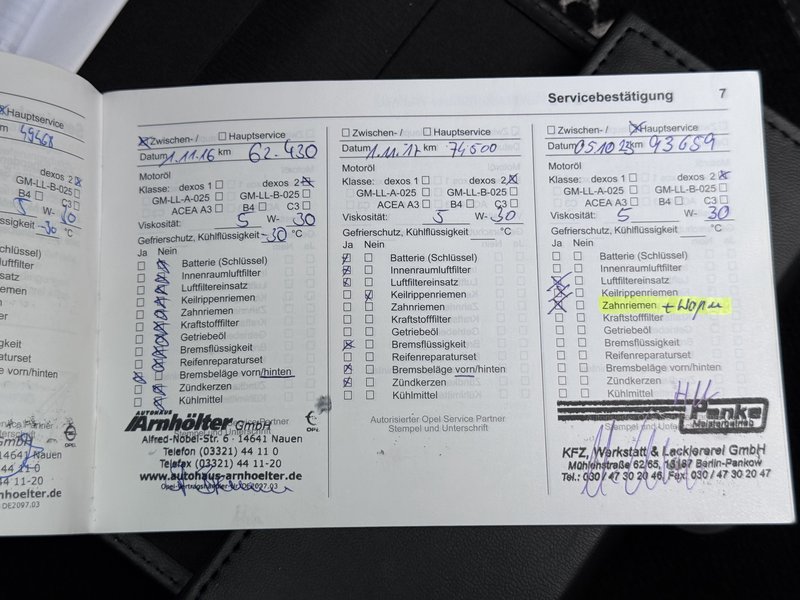 Servicebestätigung 7
Hauptservice
km 49468
dexos 2
GM-LL-B-025
B4 C3
5 W- 30
-30 °C
Zwischen- / Hauptservice
Datum 1.11.16 km 62.430
Motoröl
Klasse: dexos 1 dexos 2
GM-LL-A-025 GM-LL-B-025
ACEA A3 B4 C3
Viskosität: 5 W- 30
Gefrierschutz, Kühlflüssigkeit -30 °C
Ja Nein
Batterie (Schlüssel)
Innenraumluftfilter
Luftfiltereinsatz
Keilrippenriemen
Zahnriemen
Kraftstofffilter
Getriebeöl
Bremsflüssigkeit
Reifenreparaturset
Bremsbeläge vorn/hinten
Zündkerzen
Kühlmittel
AUTOHAUS
Arnhölter GmbH
Alfred-Nobel-Str. 6 · 14641 Nauen
Telefon (03321) 44 11 0
Telefax (03321) 44 11-20
www.autohaus-arnhoelter.de
Zwischen- / Hauptservice
Datum 1.11.17 km 74500
Motoröl
Klasse: dexos 1 dexos 2
GM-LL-A-025 GM-LL-B-025
ACEA A3 B4 C3
Viskosität: 5 W- 30
Gefrierschutz, Kühlflüssigkeit °C
Ja Nein
Batterie (Schlüssel)
Innenraumluftfilter
Luftfiltereinsatz
Keilrippenriemen
Zahnriemen
Kraftstofffilter
Getriebeöl
Bremsflüssigkeit
Reifenreparaturset
Bremsbeläge vorn/hinten
Zündkerzen
Kühlmittel
Autorisierter Opel Service Partner
Stempel und Unterschrift
Zwischen- / Hauptservice
Datum 05.10.23 km 93659
Motoröl
Klasse: dexos 1 dexos 2
GM-LL-A-025 GM-LL-B-025
ACEA A3 B4 C3
Viskosität: 5 W- 30
Gefrierschutz, Kühlflüssigkeit °C
Ja Nein
Batterie (Schlüssel)
Innenraumluftfilter
Luftfiltereinsatz
Keilrippenriemen
Zahnriemen
Kraftstofffilter
Getriebeöl
Bremsflüssigkeit
Reifenreparaturset
Bremsbeläge vorn/hinten
Zündkerzen
Kühlmittel
Panke
Meisterbetrieb
KFZ, Werkstatt & Lackiererei GmbH
Mühlenstraße 62/65, 13187 Berlin-Pankow
Tel.: 030 / 47 30 20 46, Fax: 030 / 47 30 20 47